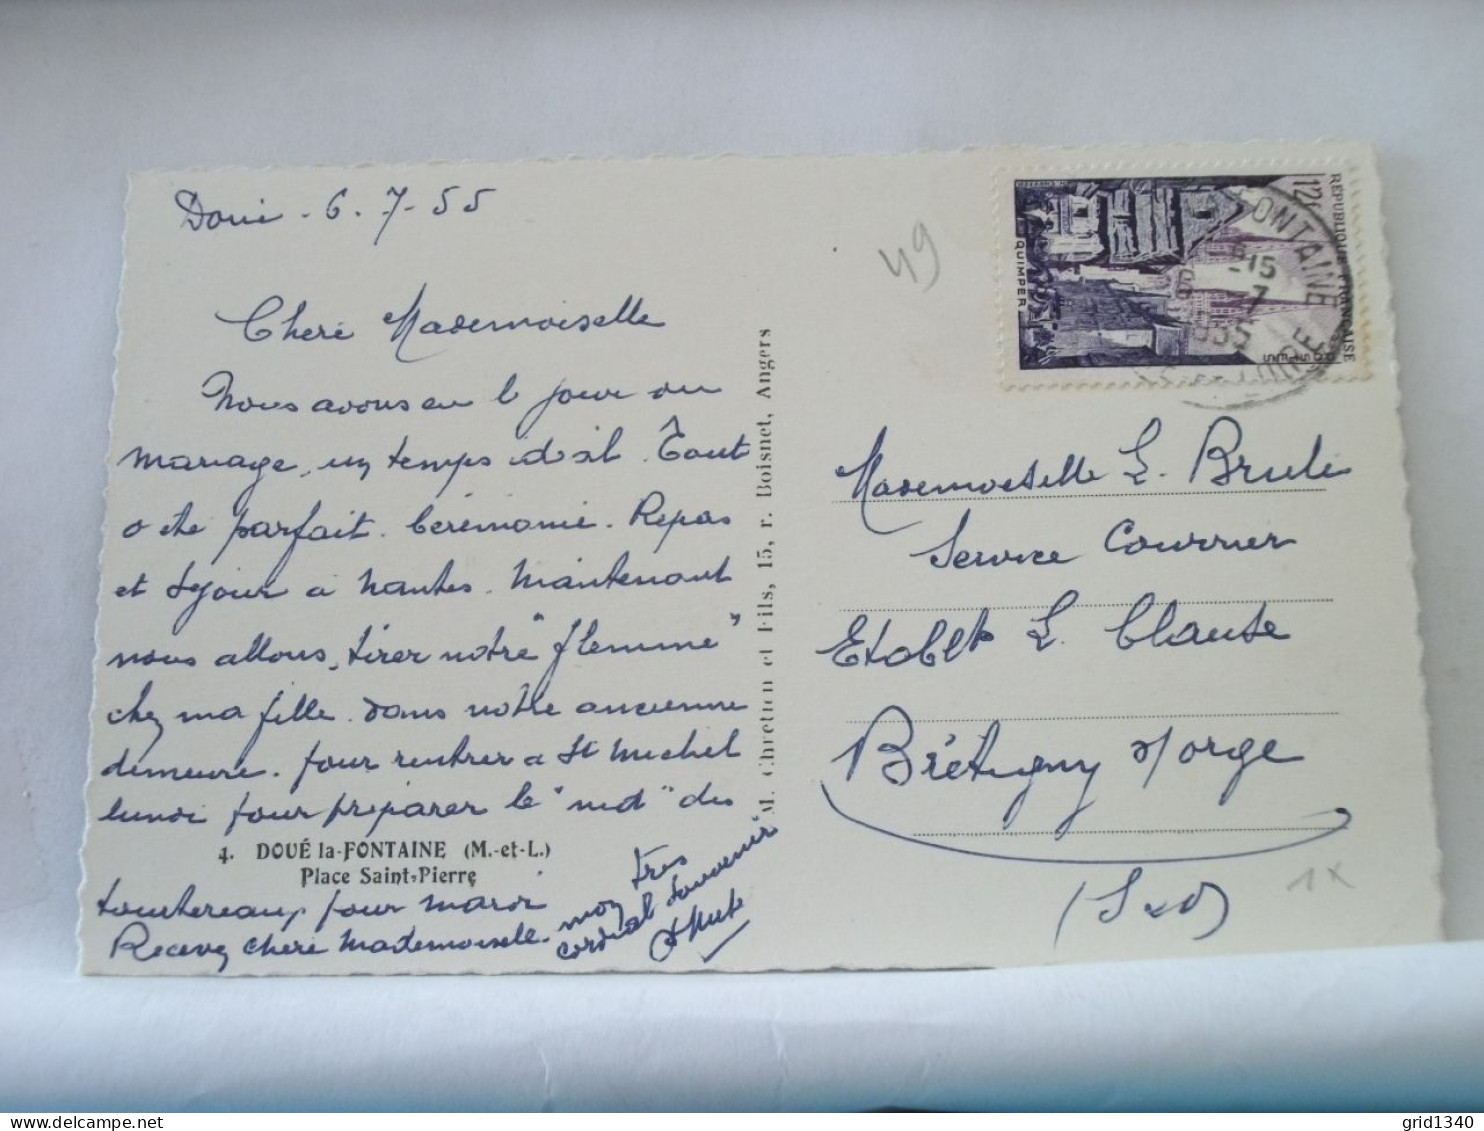 Doué - 6. 7. 55
49
Cheré Mademoiselle
Nous avons eu le jour du
mariage, un temps idéal. Tout
a été parfait. Cérémonie. Repas
et séjour à Nantes. Maintenant
nous allons, tirer notre "flemme"
chez ma fille. dans notre ancienne
demeure. pour rentrer à St Michel
lundi pour préparer le "nid" des
4. DOUÉ la-FONTAINE (M.-et-L.)
Place Saint-Pierre
tourtereaux pour mardi
Recevez cheré Mademoiselle. mon très
cordial souvenir
M. Chrétien et Fils, 15, r. Boisnet, Angers
RÉPUBLIQUE FRANÇAISE
12f
POSTES
QUIMPER
FONTAINE
15
6 -7
1955
Mademoiselle L. Brulé
Service Courrier
Etablts L. Clause
Brétigny s/orge
(S et O)
1x
grid1340